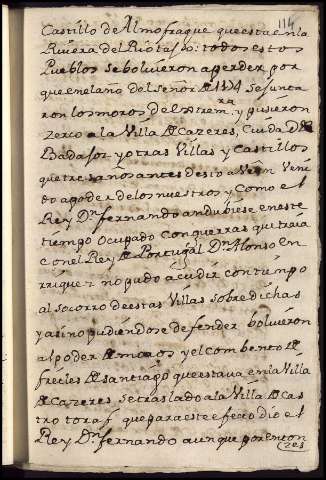 114
Castillo de Almofrague que esta en la
Rivera del Rio taxo: todos estos
Pueblos se bolvieron a perder por
que en el ano del señor de 1174 se junta
ron los moros de extrem.ra y pusieron
zerco a la Villa de Cazeres, Ciudad de
Badajoz y otras Villas y Castillos
que tres años antes desto avian Veni
do a poder de los nuestros y como el
Rey Dn fernando andubiese en este
tiempo ocupado con guerras que traia
con el Rey de Portugal Dn Alonso En
rriquez no pudo acudir con tiempo
al socorro de estas Villas sobre dichas
y asi no pudiendose defender bolvieron
al poder de moros y el combento de
freiles de santiago que estava en la Villa
de Cazeres se traslado a la Villa de Cas
tro toraf que para este efecto dio el
Rey Dn fernando aunque por enton
zes